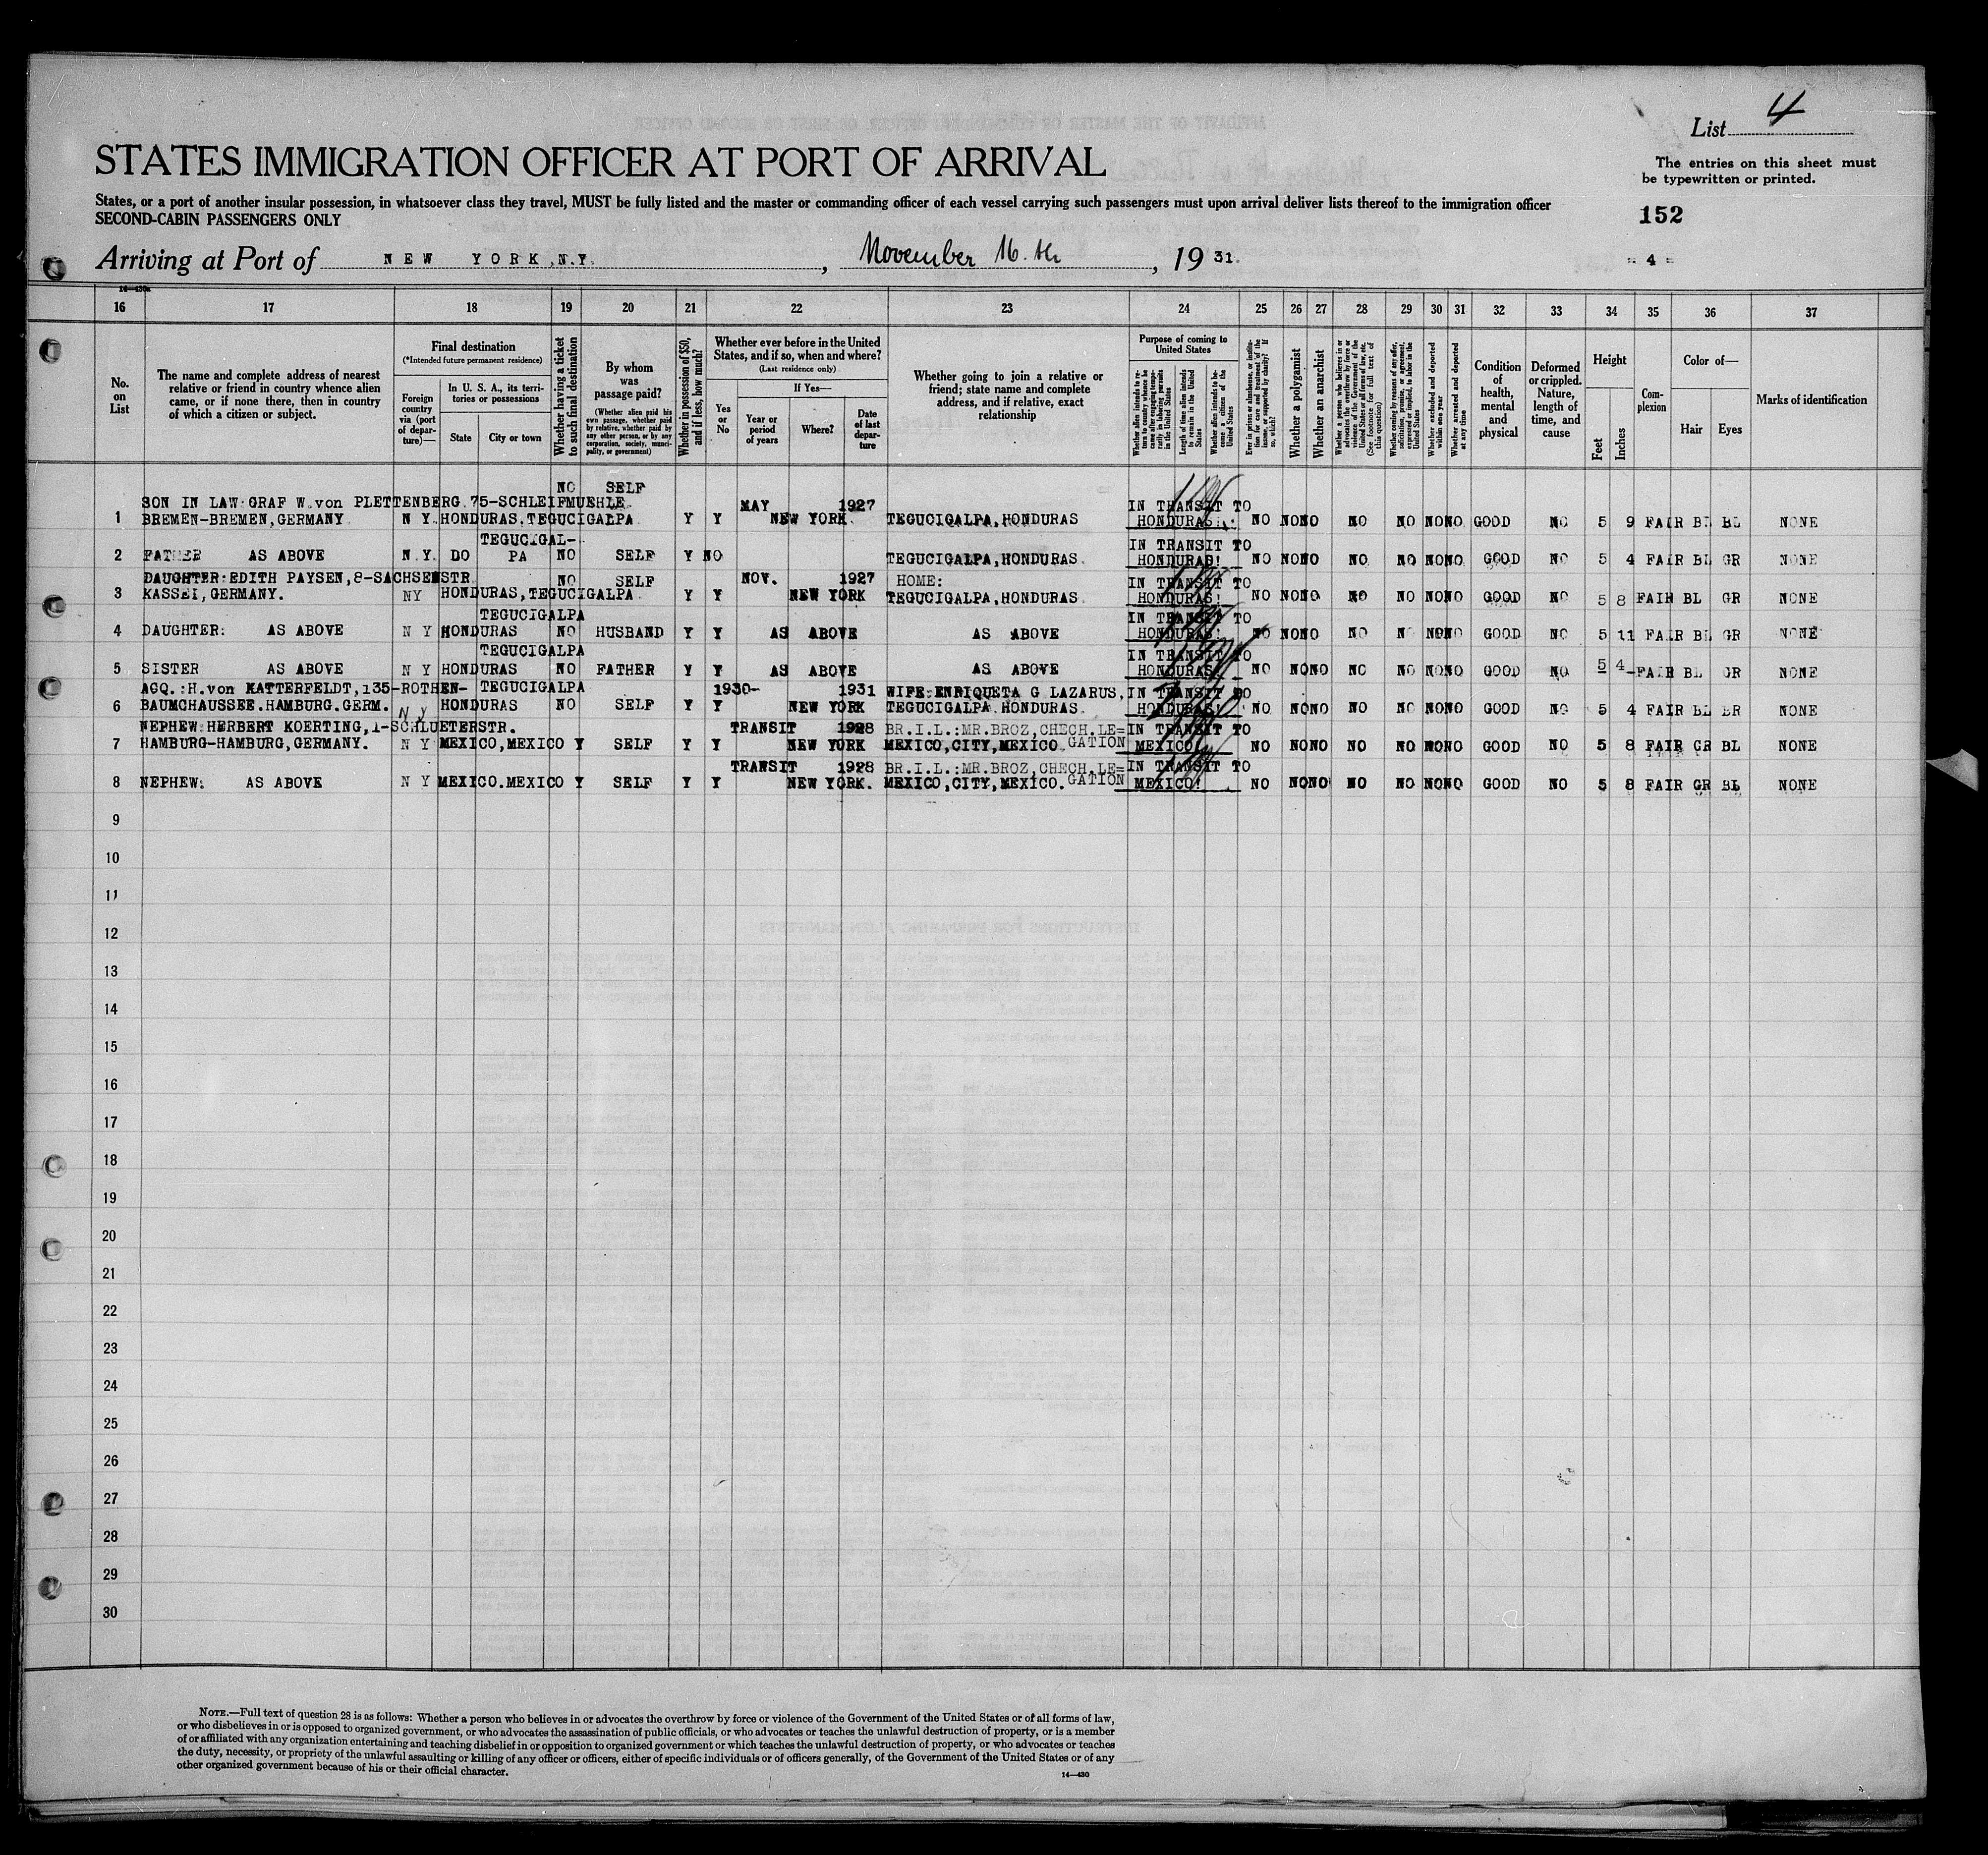 List 4
The entries on this sheet must
be typewritten or printed.
STATES IMMIGRATION OFFICER AT PORT OF ARRIVAL
States, or a port of another insular possession, in whatsoever class they travel, MUST be fully listed and the master or commanding officer of each vessel carrying such passengers must upon arrival deliver lists thereof to the immigration officer
SECOND-CABIN PASSENGERS ONLY
152
Arriving at Port of NEW YORK,N.Y. , November 16.th , 19 31.
4
16 17 18 19 20 21 22 23 24 25 26 27 28 29 30 31 32 33 34 35 36 37
No. on List
The name and complete address of nearest relative or friend in country whence alien came, or if none there, then in country of which a citizen or subject.
Final destination
(*Intended future permanent residence)
Foreign country via (port of departure)—
In U. S. A., its territories or possessions
State
City or town
Whether having a ticket to such final destination
By whom was passage paid?
(Whether alien paid his own passage, whether paid by relative, whether paid by any other person, or by any corporation, society, municipality, or government)
Whether in possession of $50, and if less, how much?
Whether ever before in the United States, and if so, when and where?
(Last residence only)
Yes or No
If Yes—
Year or period of years
Where?
Date of last departure
Whether going to join a relative or friend; state name and complete address, and if relative, exact relationship
Purpose of coming to United States
Length of time alien intends to remain in the United States
Whether alien intends to become a citizen of the United States
Whether a polygamist
Whether an anarchist
Whether excluded and deported within one year
Whether arrested and deported at any time
Condition of health, mental and physical
Deformed or crippled. Nature, length of time, and cause
Height
Feet
Inches
Complexion
Color of—
Hair
Eyes
Marks of identification
NO SELF
SON IN LAW: GRAF W.von PLETTENBERG.75-SCHLEIFMUEHLE MAY 1927 IN TRANSIT TO
1 BREMEN-BREMEN,GERMANY N Y. HONDURAS,TEGUCIGALPA Y Y NEW YORK. TEGUCIGALPA,HONDURAS HONDURAS! NO NO NO NO NO NO NO GOOD NO 5 9 FAIR BL BL NONE
TEGUCIGAL- IN TRANSIT TO
2 FATHER AS ABOVE N.Y. DO PA NO SELF Y NO TEGUCIGALPA,HONDURAS. HONDURAS! NO NO NO NO NO NO NO GOOD NO 5 4 FAIR BL GR NONE
DAUGHTER:EDITH PAYSEN,8-SACHSENSTR. NO SELF NOV. 1927 HOME: IN TRANSIT TO
3 KASSEI,GERMANY. NY HONDURAS,TEGUCIGALPA Y Y NEW YORK TEGUCIGALPA,HONDURAS HONDURAS! NO NO NO NO NO NO NO GOOD NO 5 8 FAIR BL GR NONE
TEGUCIGALPA IN TRANSIT TO
4 DAUGHTER: AS ABOVE N Y HONDURAS NO HUSBAND Y Y AS ABOVE AS ABOVE HONDURAS! NO NO NO NO NO NO NO GOOD NO 5 11 FAIR BL GR NONE
TEGUCIGALPA IN TRANSIT TO
5 SISTER AS ABOVE N Y HONDURAS NO FATHER Y Y AS ABOVE AS ABOVE HONDURAS! NO NO NO NO NO NO NO GOOD NO 5 4 FAIR BL GR NONE
AGQ.:H.von KATTERFELDT,135-ROTHEN- TEGUCIGALPA 1930- 1931 WIFE:ENRIQUETA G LAZARUS, IN TRANSIT TO
6 BAUMCHAUSSEE.HAMBURG.GERM. N Y HONDURAS NO SELF Y Y NEW YORK TEGUCIGALPA.HONDURAS HONDURAS! NO NO NO NO NO NO NO GOOD NO 5 4 FAIR BL BR NONE
NEPHEW:HERBERT KOERTING,1-SCHLUETERSTR. TRANSIT 1928 BR.I.L.:MR.BROZ,CHECH.LE= IN TRANSIT TO
7 HAMBURG-HAMBURG,GERMANY. N Y MEXICO,MEXICO Y SELF Y Y NEW YORK MEXICO,CITY,MEXICO. GATION MEXICO! NO NO NO NO NO NO NO GOOD NO 5 8 FAIR GR BL NONE
TRANSIT 1928 BR.I.L.:MR.BROZ,CHECH.LE= IN TRANSIT TO
8 NEPHEW: AS ABOVE N Y MEXICO.MEXICO Y SELF Y Y NEW YORK. MEXICO,CITY,MEXICO. GATION MEXICO! NO NO NO NO NO NO NO GOOD NO 5 8 FAIR GR BL NONE
9
10
11
12
13
14
15
16
17
18
19
20
21
22
23
24
25
26
27
28
29
30
NOTE.—Full text of question 28 is as follows: Whether a person who believes in or advocates the overthrow by force or violence of the Government of the United States or of all forms of law,
or who disbelieves in or is opposed to organized government, or who advocates the assassination of public officials, or who advocates or teaches the unlawful destruction of property, or is a member
of or affiliated with any organization entertaining and teaching disbelief in or opposition to organized government or which teaches the unlawful destruction of property, or who advocates or teaches
the duty, necessity, or propriety of the unlawful assaulting or killing of any officer or officers, either of specific individuals or of officers generally, of the Government of the United States or of any
other organized government because of his or their official character.
14—430